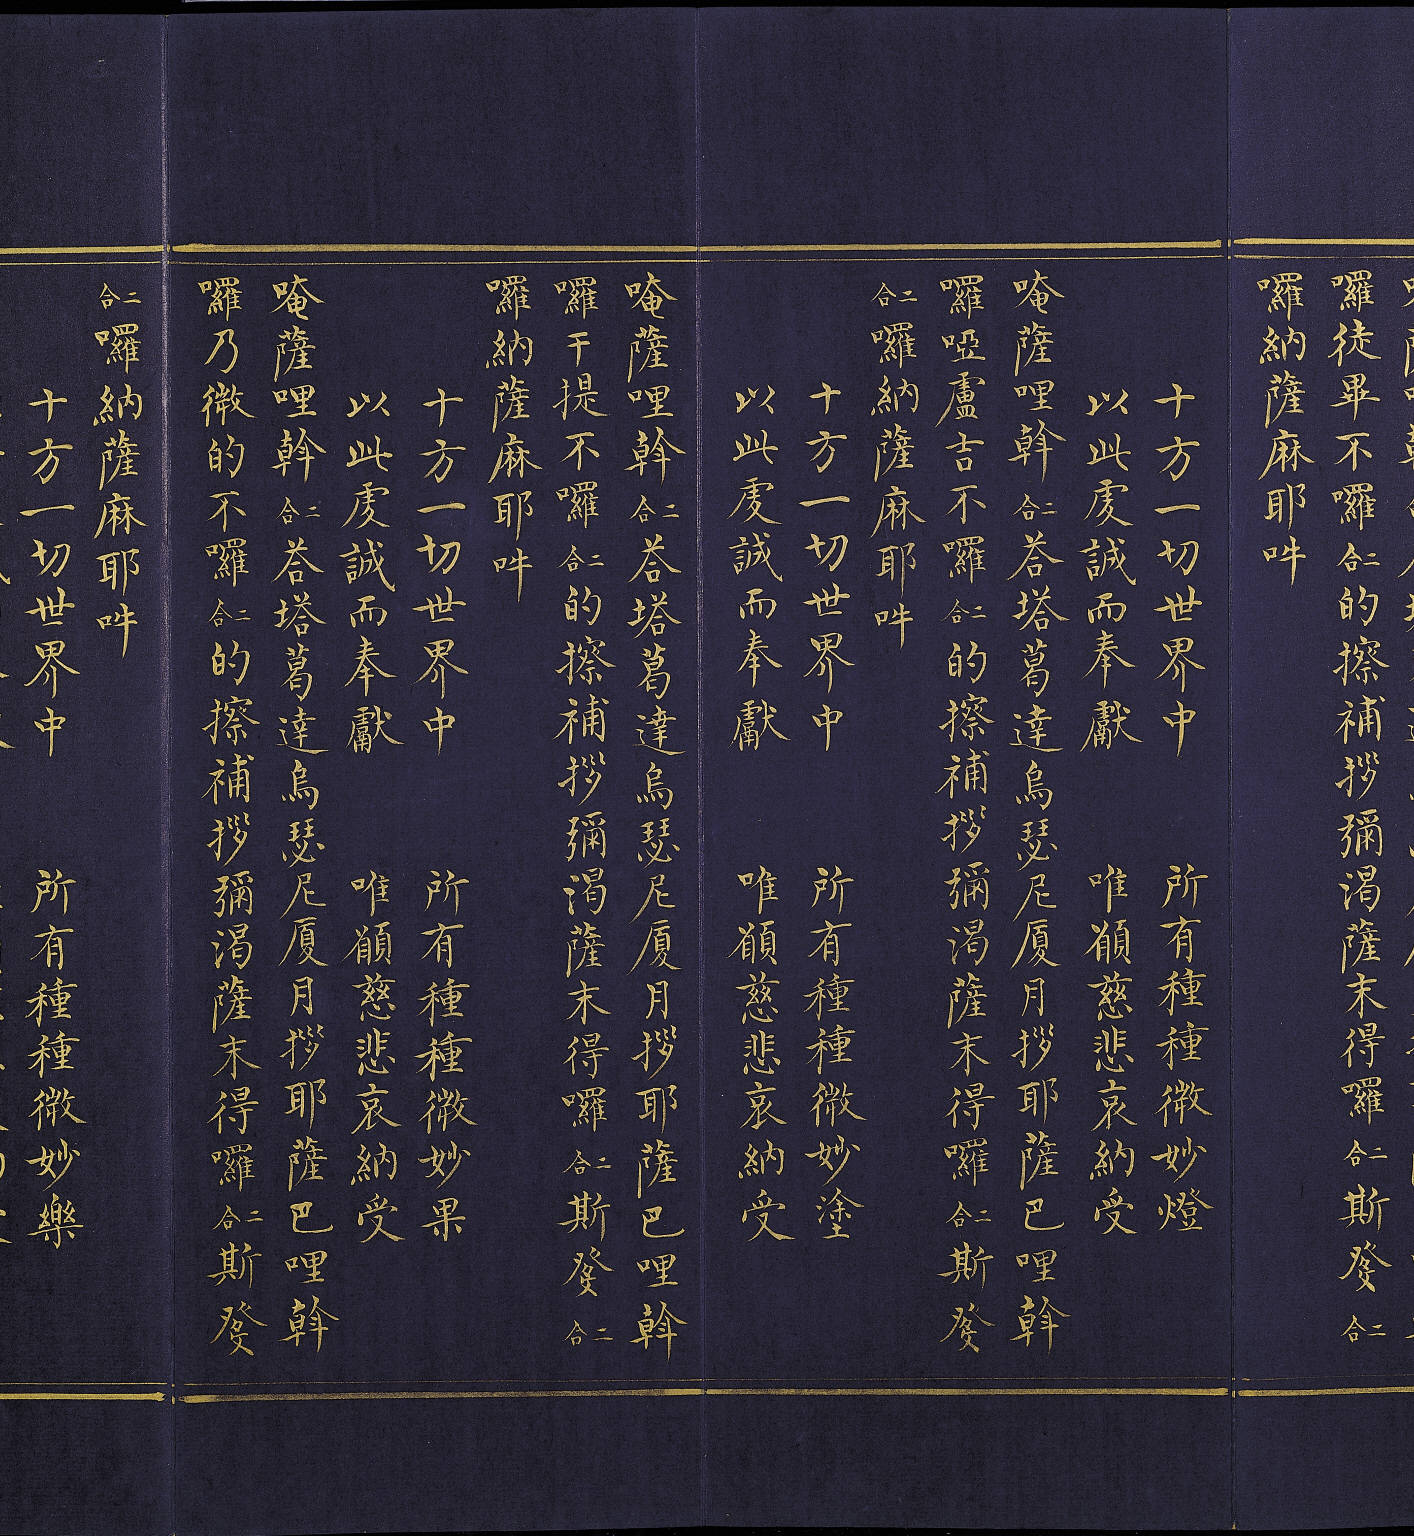 囉徒畢不囉二合的擦補拶彌渴薩末得囉二合斯癹二合
囉納薩麻耶吽
十方一切世界中　所有種種微妙燈
以此虔誠而奉獻　唯願慈悲哀納受
唵薩哩斡二合荅塔葛達烏瑟尼厦月拶耶薩巴哩斡
囉啞盧吉不囉二合的擦補拶彌渴薩末得囉二合斯癹
二合囉納薩麻耶吽
十方一切世界中　所有種種微妙塗
以此虔誠而奉獻　唯願慈悲哀納受
唵薩哩斡二合荅塔葛達烏瑟尼厦月拶耶薩巴哩斡
囉干提不囉二合的擦補拶彌渴薩末得囉二合斯癹二合
囉納薩麻耶吽
十方一切世界中　所有種種微妙果
以此虔誠而奉獻　唯願慈悲哀納受
唵薩哩斡二合荅塔葛達烏瑟尼厦月拶耶薩巴哩斡
囉乃微的不囉二合的擦補拶彌渴薩末得囉二合斯癹
二合囉納薩麻耶吽
十方一切世界中　所有種種微妙樂